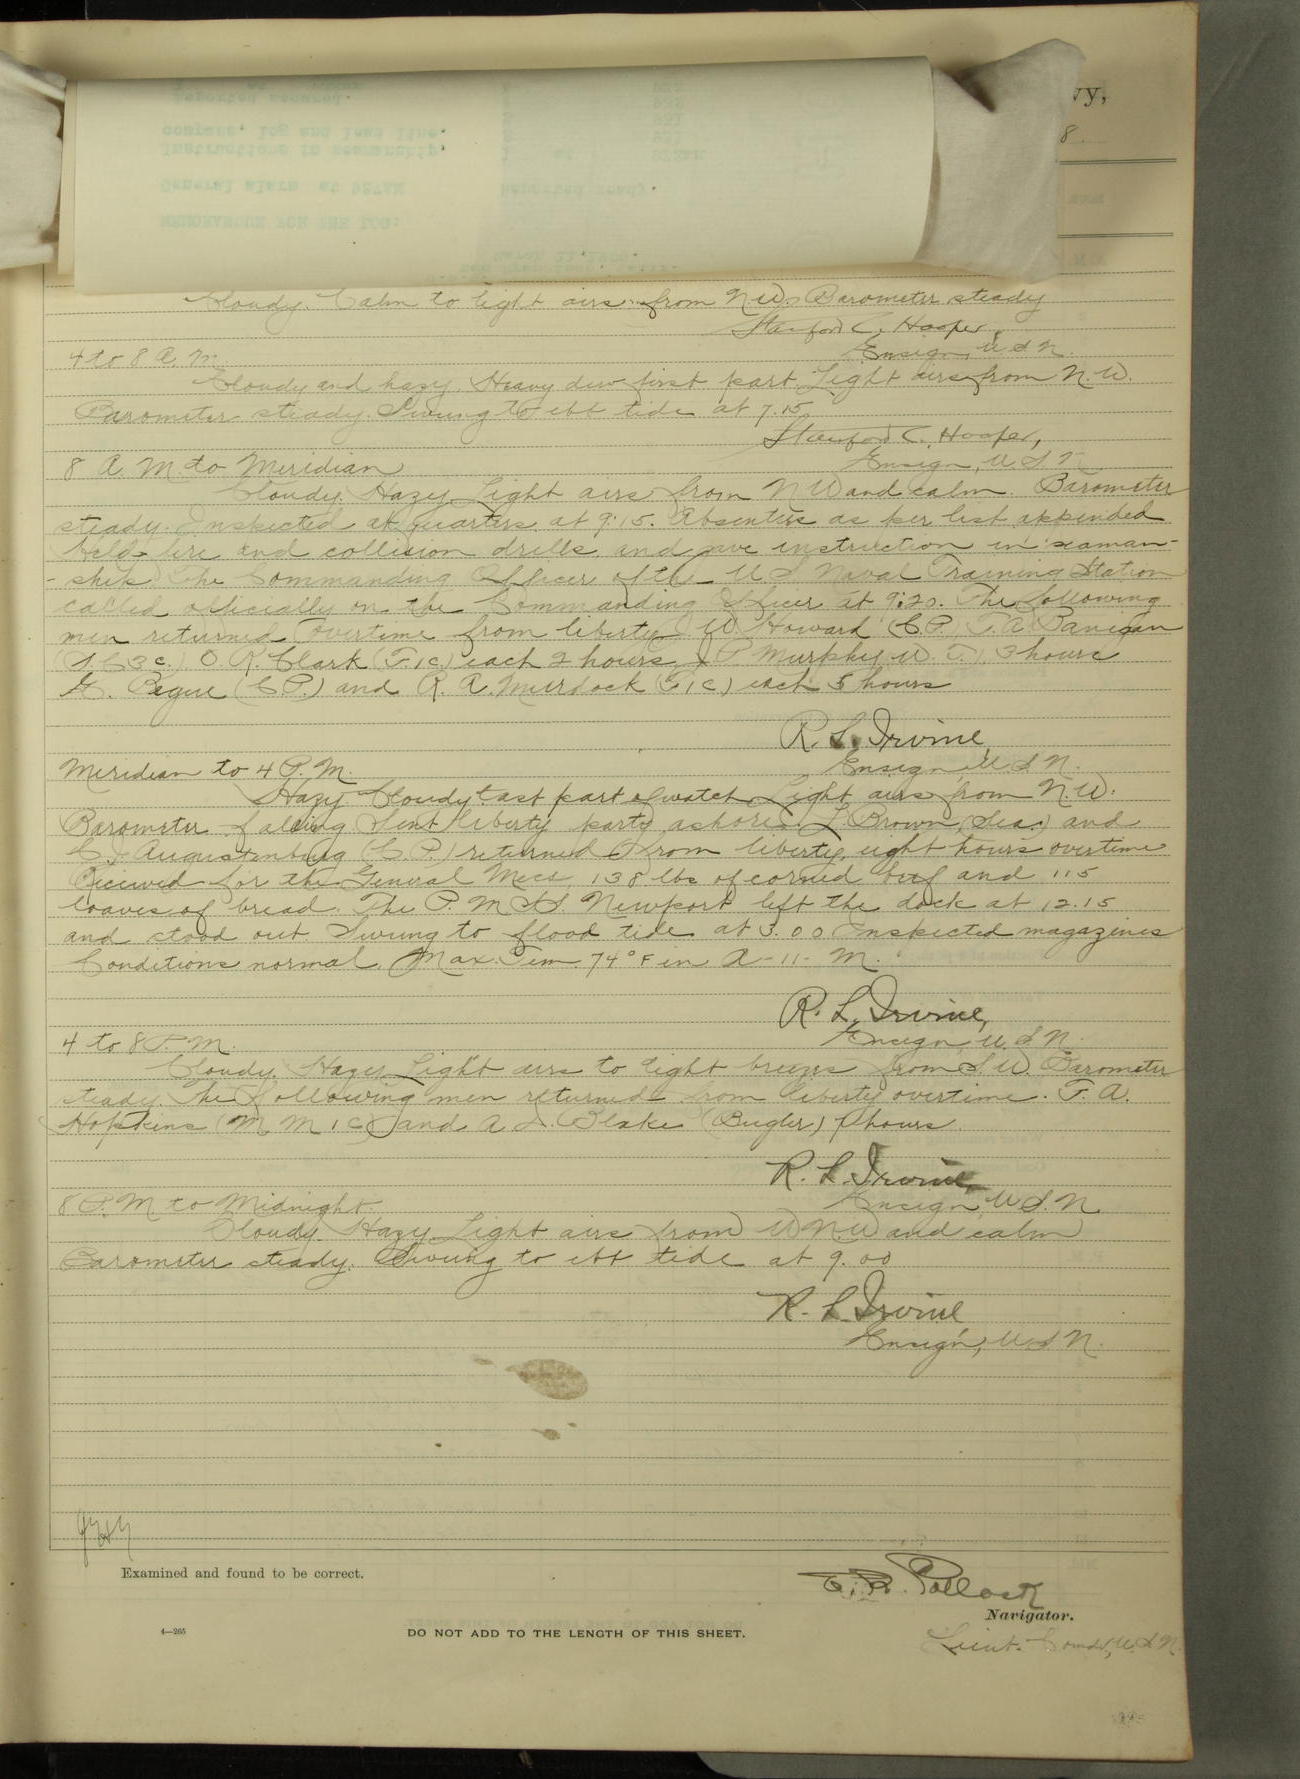 vy,
8
Cloudy. Calm to light airs from NW. Barometer steady
Stanford C. Hooper,
Ensign, U S N.
4 to 8 A. M.
Cloudy and hazy. Heavy dew first part. Light airs from N. W.
Barometer steady. Swung to ebb tide at 7.15
Stanford C. Hooper,
Ensign, U. S N
8 A. M to Meridian
Cloudy. Hazy. Light airs from NW and calm. Barometer
steady. Inspected at quarters at 9:15. Absentees as per list appended
Held fire and collision drills and gave instruction in seaman-
-ship. The Commanding Officer of the U S Naval Training Station
called officially on the Commanding Officer at 9:20. The following
men returned overtime from liberty W. Howard (C.P.) T. A.
(S.C 3 c.) O. R. Clark (F. 1 c) each 2 hours, J P Murphy, W. T.), 3 hours
G. Begue (C P.) and R. A. Murdock (F. 1 c) each 5 hours
R. L. Irvine,
Ensign, U S N.
Meridian to 4 P. M.
Hazy Cloudy last part of watch. Light airs from NW.
Barometer falling Sent liberty party ashore. L Brown, (Sea.) and
C. J. Augustenburg (C. P.) returned from liberty eight hours overtime
Received for the General Mess, 138 lbs of corned beef and 115
loaves of bread. The P. M S S. Newport left the dock at 12.15
and stood out Swung to flood tide at 3.00 Inspected magazines
Conditions normal. Max. Tem. 74° F in A-11-M.
R. L. Irvine,
Ensign, U. S N.
4 to 8 P. M.
Cloudy. Hazy. Light airs to light breezes from S. W. Barometer
steady. The following men returned from liberty overtime. F. A.
Hopkins (M M 1 C) and A L. Blake (Bugler) 7 hours.
R. L. Irvine,
Ensign, U S N
8 P. M to Midnight.
Cloudy Hazy Light airs from W N.W and calm
Barometer steady. Swung to ebb tide at 9.00
R. L. Irvine
Ensign, U S N.
Examined and found to be correct.
E. R. Pollock
Navigator.
4—265
DO NOT ADD TO THE LENGTH OF THIS SHEET.
Lieut. Comdr, U. S N.